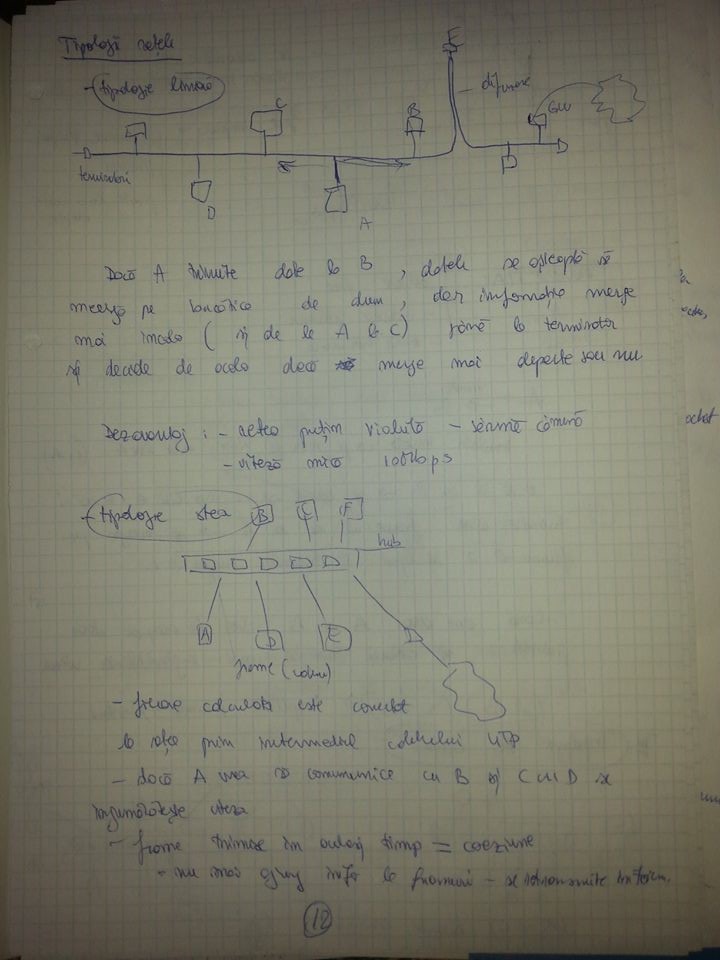 Tipologii rețele
E
- tipologie liniară
C
B
difuzare
GW
terminatori
D
D
A
Dacă A trimite date la B, datele se așteaptă să
meargă pe bucățica de drum, dar informația merge
mai încolo ( și de la A la C) până la terminator
și decide de acolo dacă merge mai departe sau nu
Dezavantaj : - rețea puțin - sârmă comună
- viteză mică 10Mbps
- tipologie stea
B C F
hub
A D E
frame (cadru)
- fiecare calculator este conectat
la rețea prin intermediul cablului UTP
- dacă A vrea să comunice cu B și C cu D se
viteza
- frame trimise în același timp = coeziune
- nu mai ajung info la - se retransmite
12